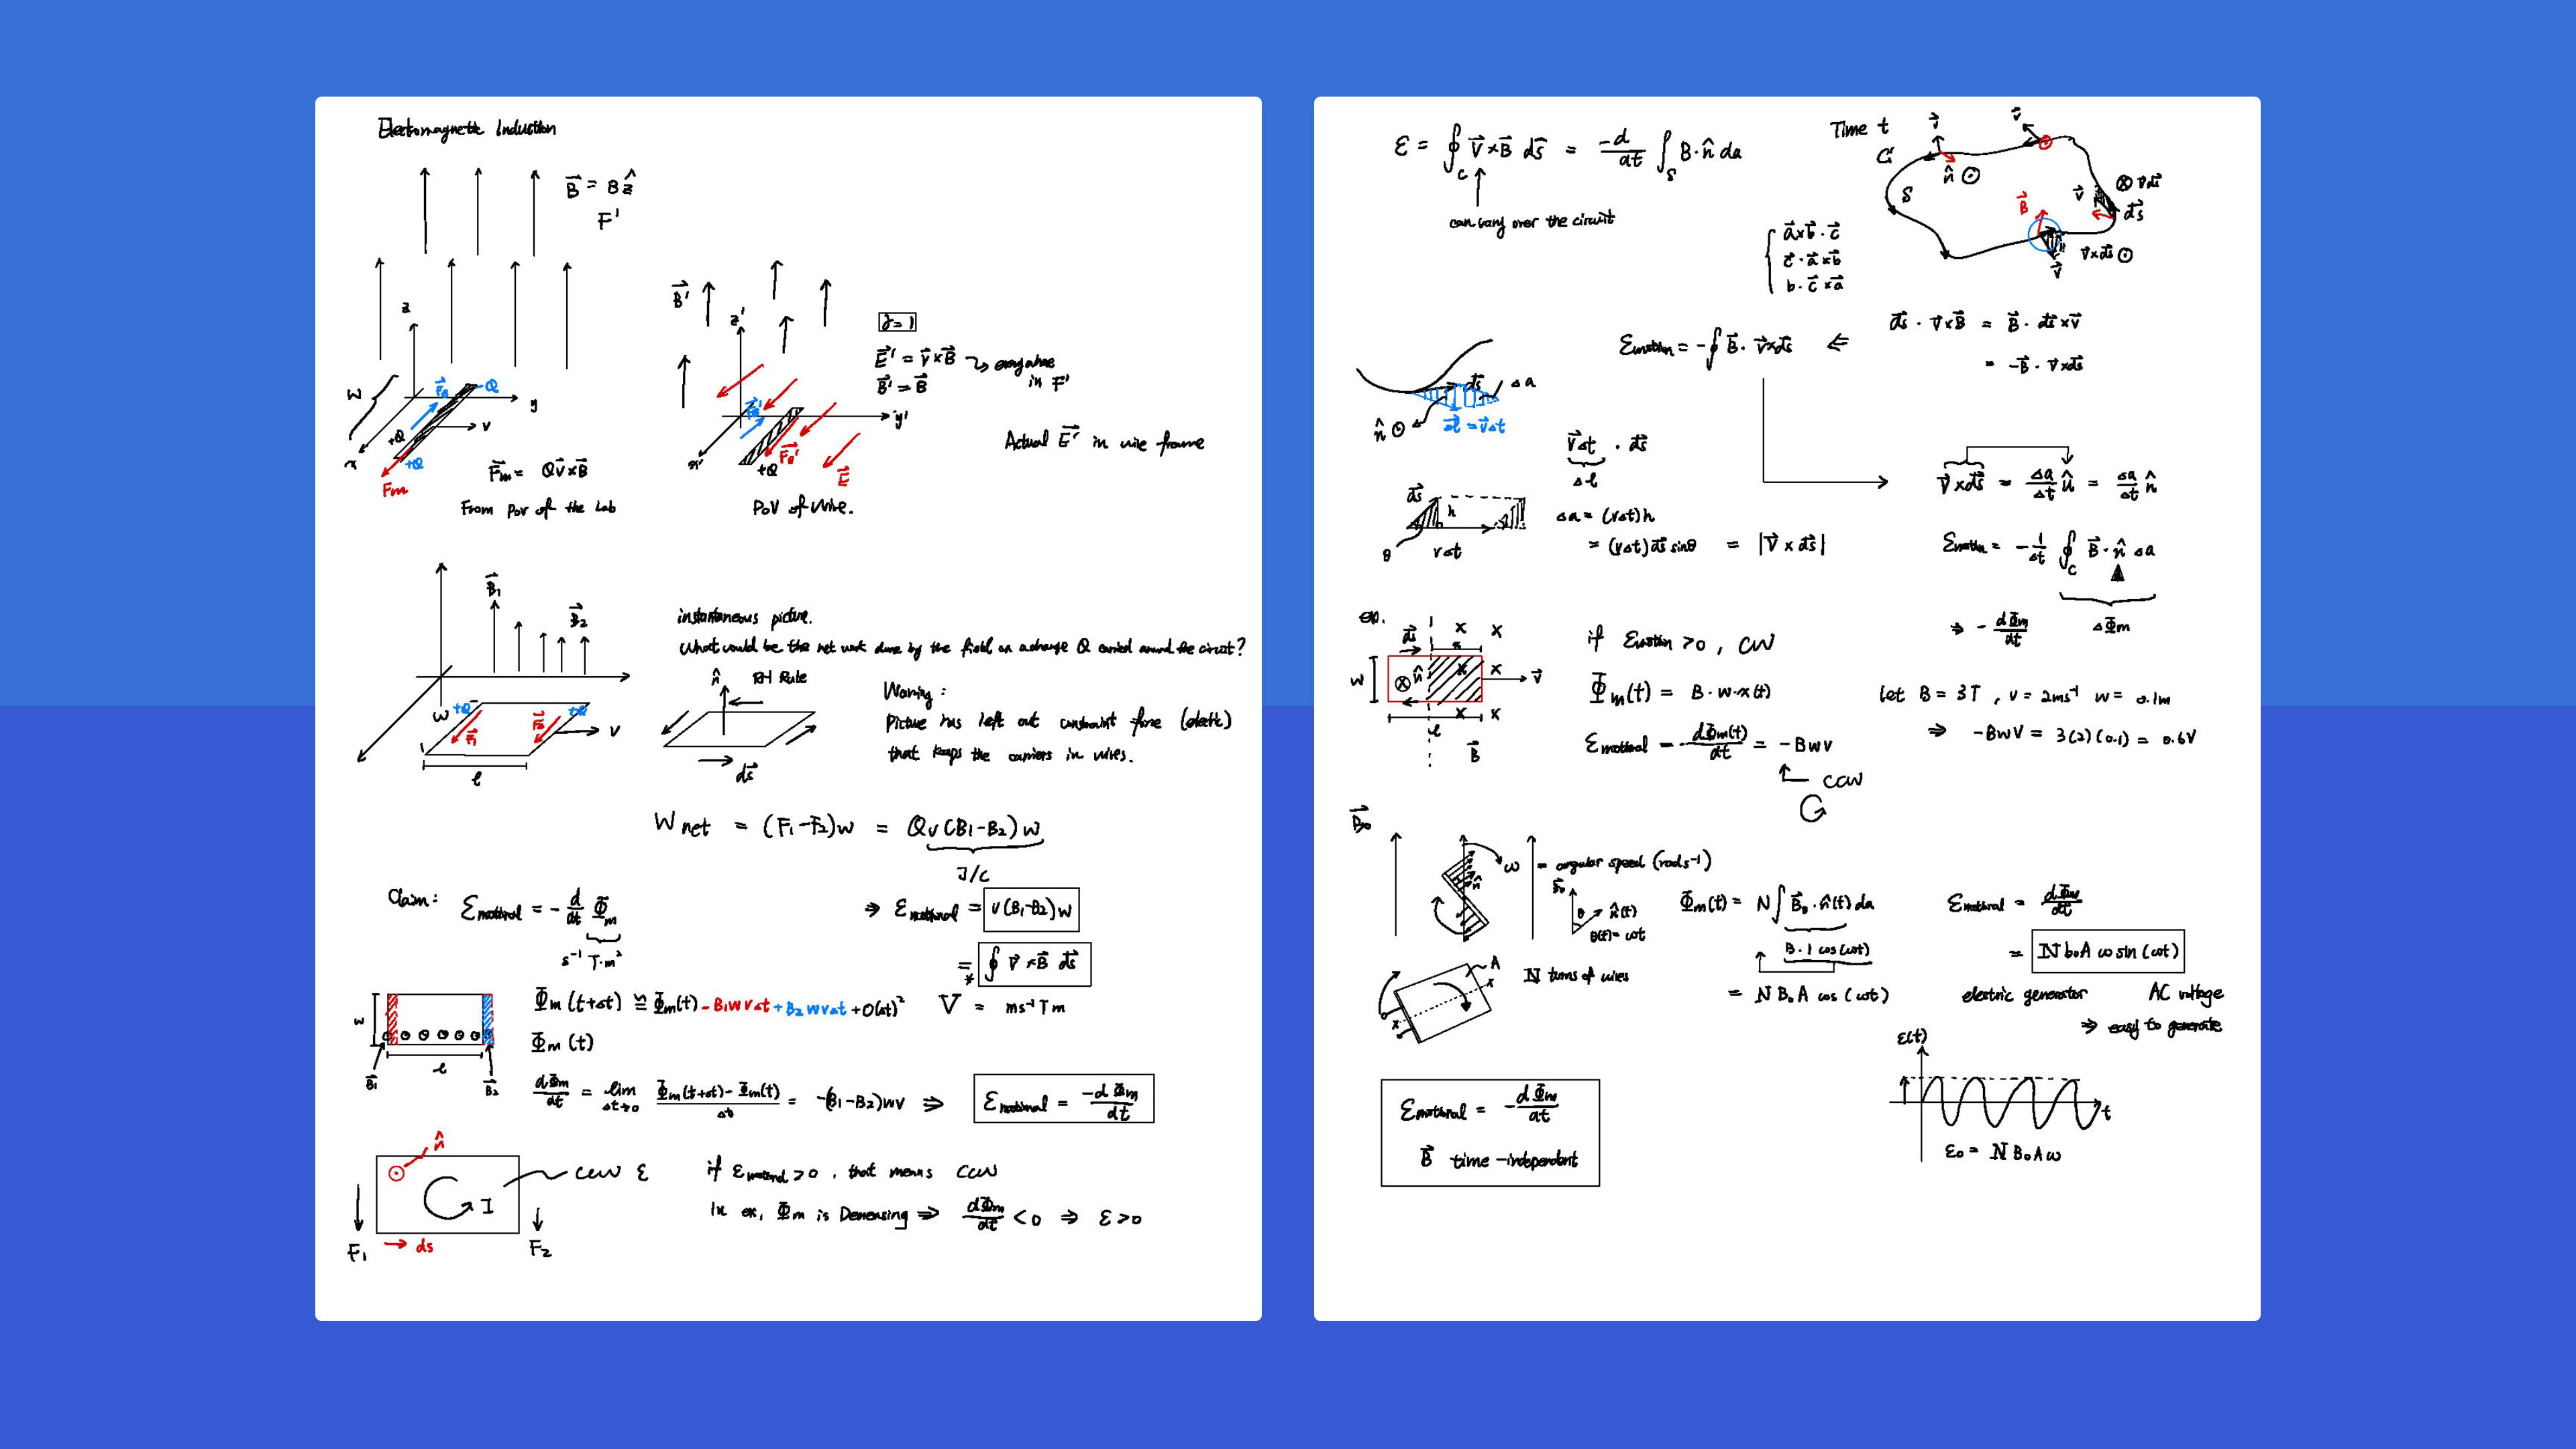 Electromagnetic Induction
B⃗ = B ẑ
F'
z
W
F⃗e
-Q
y
+Q
v
x
+Q
Fm
F⃗m = Qv⃗×B⃗
From Pov of the Lab
B⃗'
z'
γ=1
E⃗' = v⃗×B⃗ → everywhere in F'
B⃗' = B⃗
y'
x'
+Q
E⃗
PoV of wire.
Actual E⃗' in wire frame
B⃗1
B⃗2
w
+Q
+Q
F⃗1
F⃗2
v
ℓ
instantaneous picture.
What would be the net work done by the field on a charge Q carried around the circuit?
n̂
RH Rule
ds⃗
Warning:
Picture has left out constraint force (electric)
that keeps the carriers in wires.
W net = (F1-F2)w = Qv(B1-B2)w
J/C
Claim: Ɛmotional = - d/dt Φm
s⁻¹ T·m²
⇒ Ɛmotional = v(B1-B2)w
= ∮ v⃗×B⃗ ds⃗
V = ms⁻¹Tm
w
ℓ
B⃗1
B⃗2
Φm(t+Δt) ≅ Φm(t) - B1wvΔt + B2wvΔt + O(Δt)²
Φm(t)
dΦm/dt = lim Δt→0 Φm(t+Δt)-Φm(t)/Δt = -(B1-B2)wv ⇒ Ɛmotional = -dΦm/dt
n̂
ccw Ɛ
I
F1
ds
F2
if Ɛmotional >0, that means ccw
In ex, Φm is Decreasing ⇒ dΦm/dt <0 ⇒ Ɛ>0
Ɛ = ∮C v⃗×B⃗ ds⃗ = -d/dt ∫S B·n̂ da
can vary over the circuit
Time t
C
S
n̂ ⊙
v⃗
v⃗
B⃗
v⃗
ds⃗
v⃗×ds⃗ ⊙
v⃗
a⃗×b⃗·c⃗
c⃗·a⃗×b⃗
b·c⃗×a⃗
Ɛmotion = -∮ B⃗·v⃗×ds⃗ ⇐ ds⃗·v⃗×B⃗ = B⃗·ds⃗×v⃗
= -B⃗·v⃗×ds⃗
ds⃗
Δa
n̂ ⊙
= v⃗Δt
v⃗Δt · ds⃗
Δℓ
ds⃗
h
θ
vΔt
Δa = (vΔt)h
= (vΔt)ds⃗ sinθ = |v⃗×ds⃗|
v⃗×ds⃗ = Δa/Δt û = Δa/Δt n̂
Ɛmotion = -1/Δt ∮C B⃗·n̂ Δa
ΔΦm
⇒ - dΦm/dt
ex.
ds⃗
x x
x
w
⊗ n̂
x x
v⃗
x x
ℓ
B⃗
if Ɛmotion >0, CW
Φm(t) = B·w·x(t)
Ɛmotional = -dΦm(t)/dt = -Bwv
ccw
let B = 3T, v = 2ms⁻¹ w = 0.1m
⇒ -BwV = 3(2)(0.1) = 0.6V
B⃗0
n̂
ω = angular speed (rads⁻¹)
B⃗0
θ
n̂(t)
θ(t)=ωt
A
N turns of wires
Φm(t) = N∫ B⃗0·n̂(t) da
B·1 cos(ωt)
= NB0A cos(ωt)
Ɛmotional = dΦm/dt
= Nb0A ω sin(ωt)
electric generator
AC voltage
⇒ easy to generate
Ɛ(t)
t
Ɛ0 = NB0Aω
Ɛmotional = -dΦm/dt
B⃗ time-independent